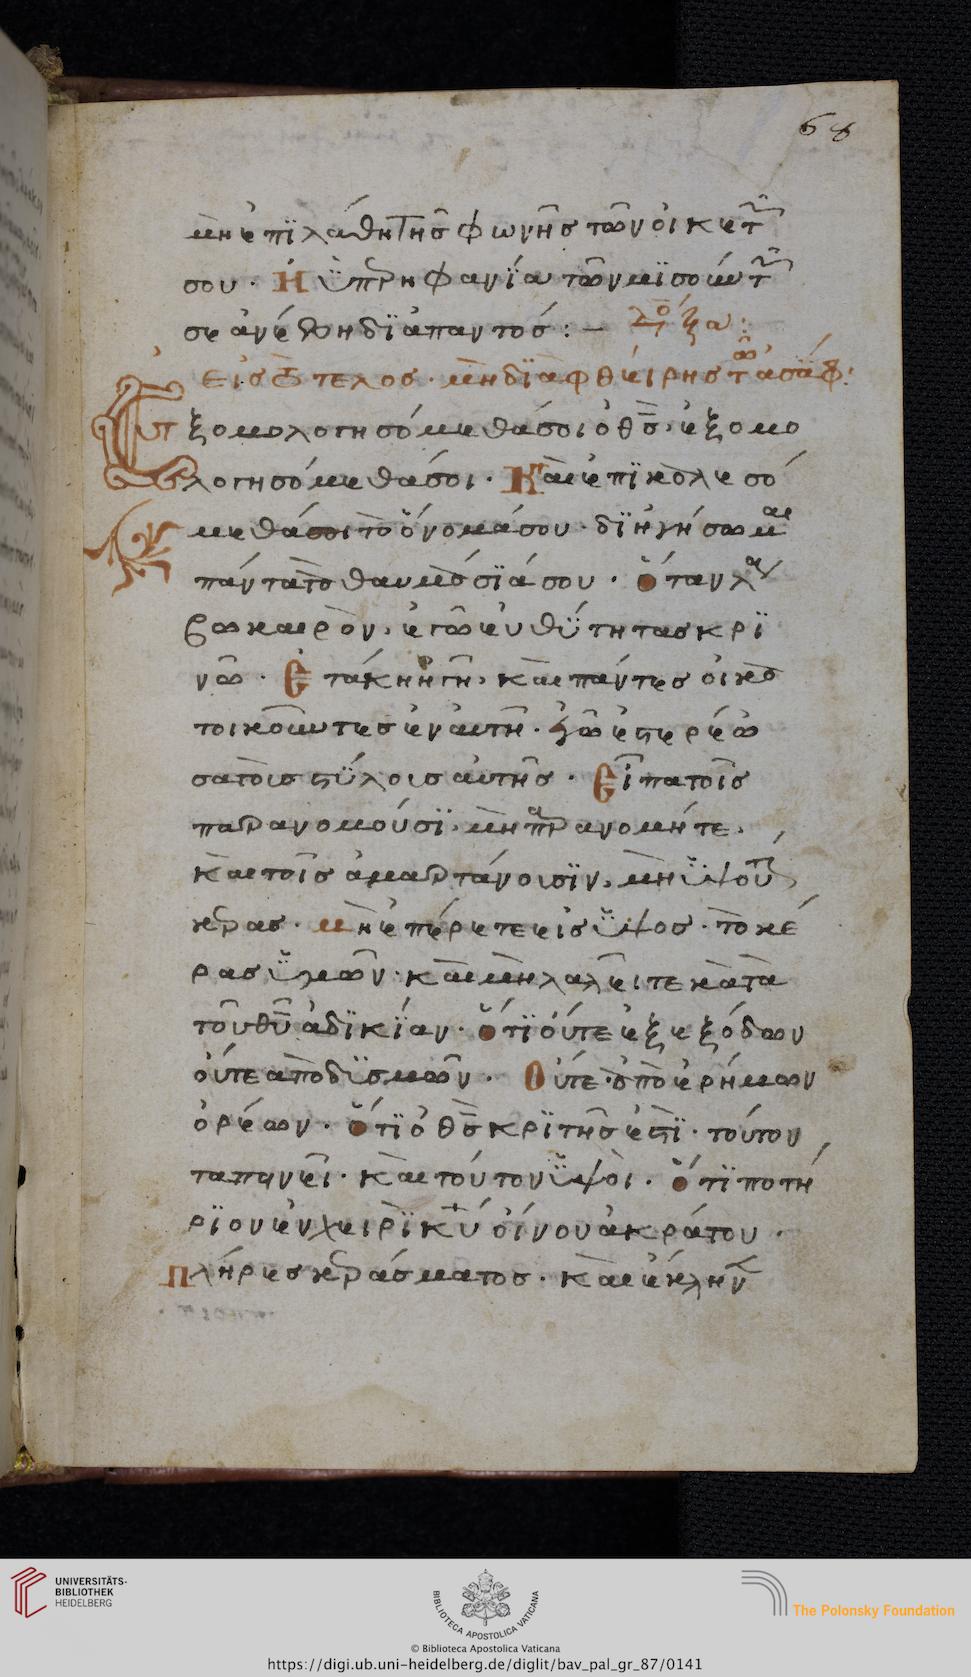 68
μὴ ἐπϊλάθη τῆς φωνῆς τῶν οἰκετ
σου · Ἡ ὑπρηφανΐα τῶν μϊσούντ
σε ἀνέβη δϊάπαντός :– Δόξα :
εἰς τὸ τέλος · μὴ δϊαφθείρης τῶ ἀσάφ :
ξομολογησόμεθά σοι ὁ θς, ἐξομο
λογησόμεθά σοι · Καὶ ἐπϊκαλεσό
μεθά σοι τὸ ὄνομά σου · δϊηγήσωμαι
πάντα τὰ θαυμάσϊά σου · ὅταν λα
βω καιρὸν, ἐγὼ εὐθΰτητας κρϊ
νῶ · Ἐτάκη ἡ γῆ, καὶ πάντες οἱ κα
τοικοῦντες ἐν αὐτῆ · ἐγὼ ἐστερέω
σα τοὺς στΰλους αὐτῆς · Εἶπα τοῖς
παρανομούσϊ, μὴ παρανομήτε,
καὶ τοῖς ἁμαρτάνουσϊν, μὴ ὑψοῦτε
κέρας · μὴ ἐπέρετε εἰς ὕψος · τὸ κέ
ρας ὑμῶν · καὶ μὴ λαλεῖτε κατὰ
τοῦ θυ ἀδϊκΐαν · ὅτϊ οὔτε ἐξ εξόδων
οὔτε απὸ δϋσμῶν · Οὔτε ἀπὸ ἐρήμων
ὀρέων · ὅτϊ ὁ θς κρϊτής ἐστϊ · τοῦτον
ταπηνεῖ · καὶ τοῦτον ὑψὸι · ὅτϊ ποτή
ρϊον ἐν χειρὶ κυ οἴνου ἀκράτου ·
πλήρες κεράσματος · καὶ ἔκλην
UNIVERSITÄTS-
BIBLIOTHEK
HEIDELBERG
BIBLIOTECA APOSTOLICA VATICANA
© Biblioteca Apostolica Vaticana
The Polonsky Foundation
https://digi.ub.uni-heidelberg.de/diglit/bav_pal_gr_87/0141